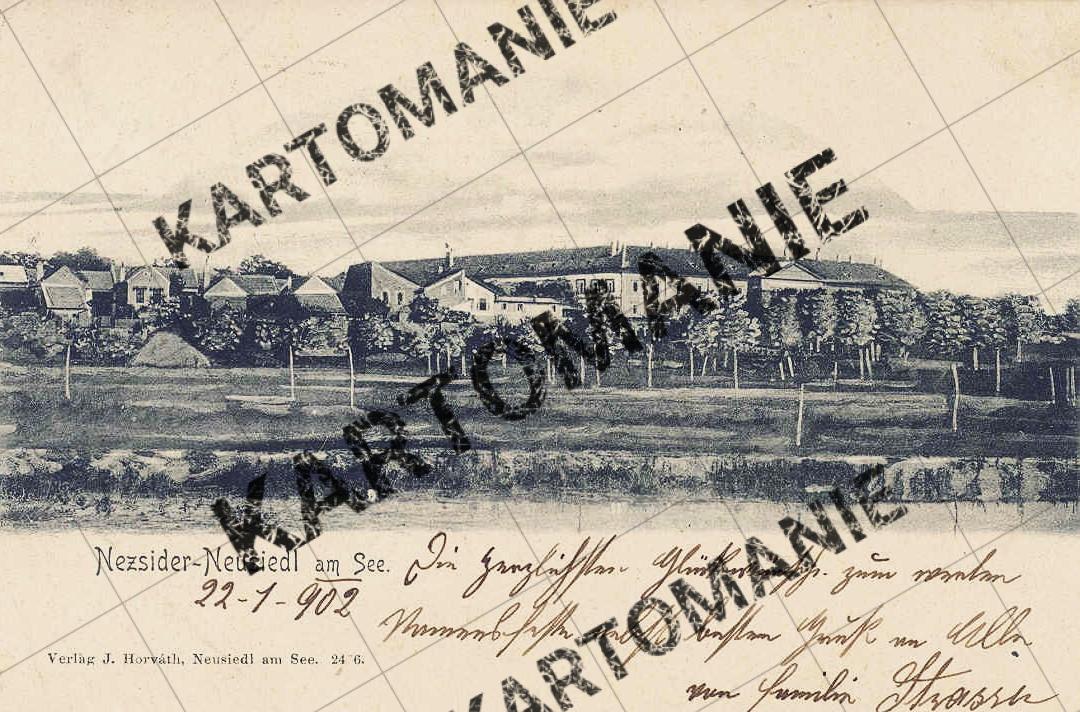 KARTOMANIE
KARTOMANIE
KARTOMANIE
Nezsider-Neusiedl am See.
22-1-902
Die herzlichsten Glückwünsche zum werten
Namensfeste nebst besten Gruß an Alle
von Familie Strasser
Verlag J. Horváth, Neusiedl am See. 24 6.